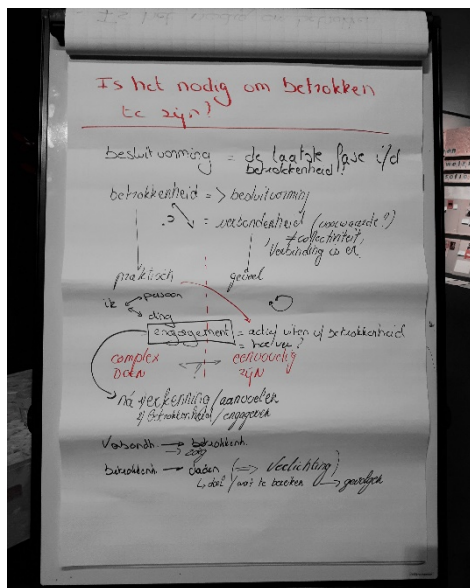 Is het nodig om betrokken
te zijn?
besluitvorming = de laatste fase i/d
betrokkenheid!
betrokkenheid => besluitvorming
? = verbondenheid (voorwaarde?)
≠ collectiviteit,
'Verbinding is er.
praktisch gevoel
ik persoon
ding
engagement = actief uiten v/ betrokkenheid
= hoever?
complex ? eenvoudig
DOEN ZIJN
ná verkenning/aanvoelen
v/ betrokkenheid/engageren
Verbondh. → betrokkenh.
→ zorg
betrokkenh. → daden (=> Verlichting)
↳ doel/wat te bereiken → gevolgen